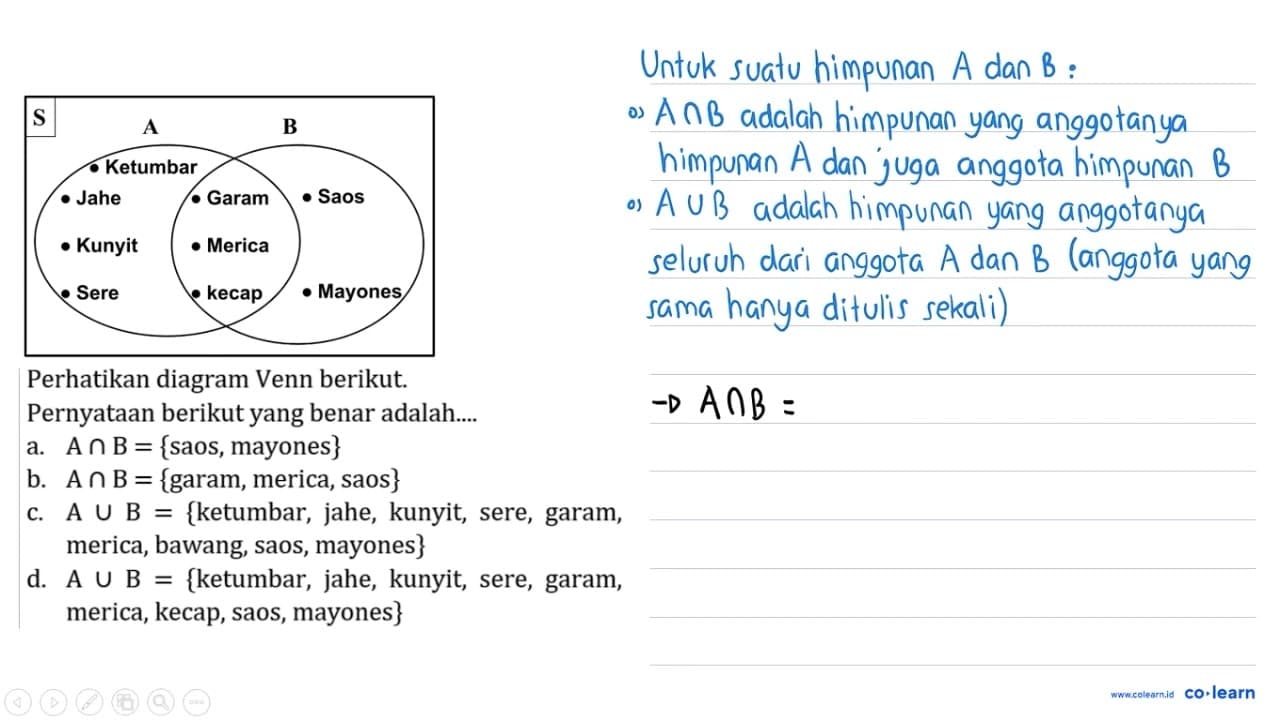 S
A
B
• Ketumbar
• Jahe
• Garam
• Saos
• Kunyit
• Merica
• Sere
• kecap
• Mayones
Perhatikan diagram Venn berikut.
Pernyataan berikut yang benar adalah....
a. A ∩ B = {saos, mayones}
b. A ∩ B = {garam, merica, saos}
c. A ∪ B = {ketumbar, jahe, kunyit, sere, garam,
merica, bawang, saos, mayones}
d. A ∪ B = {ketumbar, jahe, kunyit, sere, garam,
merica, kecap, saos, mayones}
Untuk suatu himpunan A dan B :
o) A∩B adalah himpunan yang anggotanya
himpunan A dan juga anggota himpunan B
o) A ∪ B adalah himpunan yang anggotanya
seluruh dari anggota A dan B (anggota yang
sama hanya ditulis sekali)
→ A∩B =
www.colearn.id co·learn